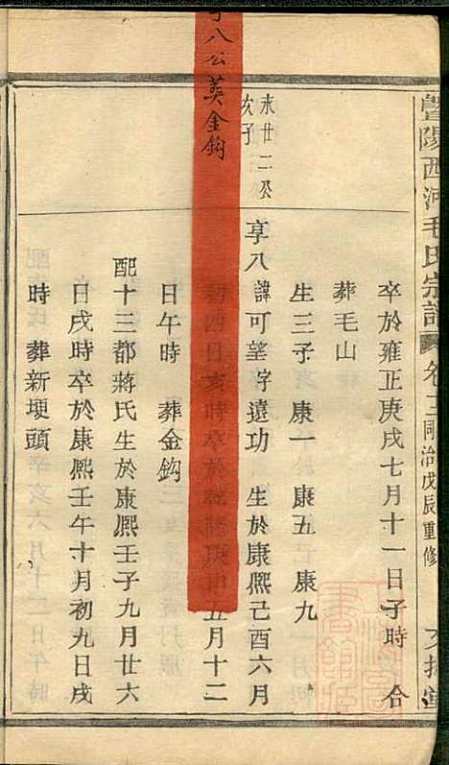 暨陽西河毛氏宗譜 卷三 同治戊辰重修
卒於雍正庚戌七月十一日子時 合
葬毛山
生三子 康一 康五 康九
永廿二公
次子
享八 諱可望字遠功 生於康熙己酉六月
初四日亥時卒於 五月十二
日午時 葬金鈎
配十三都蔣氏生於康熙壬子九月廿六
日戌時卒於康熙壬午十月初九日戌
時 葬新埂頭
八公葬金鈎